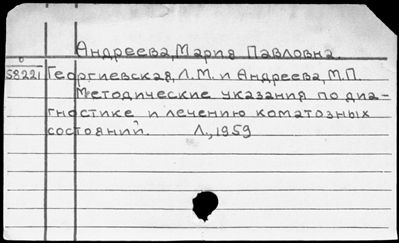 Андреева, Мария Павловна.
58221 Георгиевская, Л.М. и Андреева, М.П.
Методические указания по диа-
гностике и лечению коматозных
состояний. Л., 1959